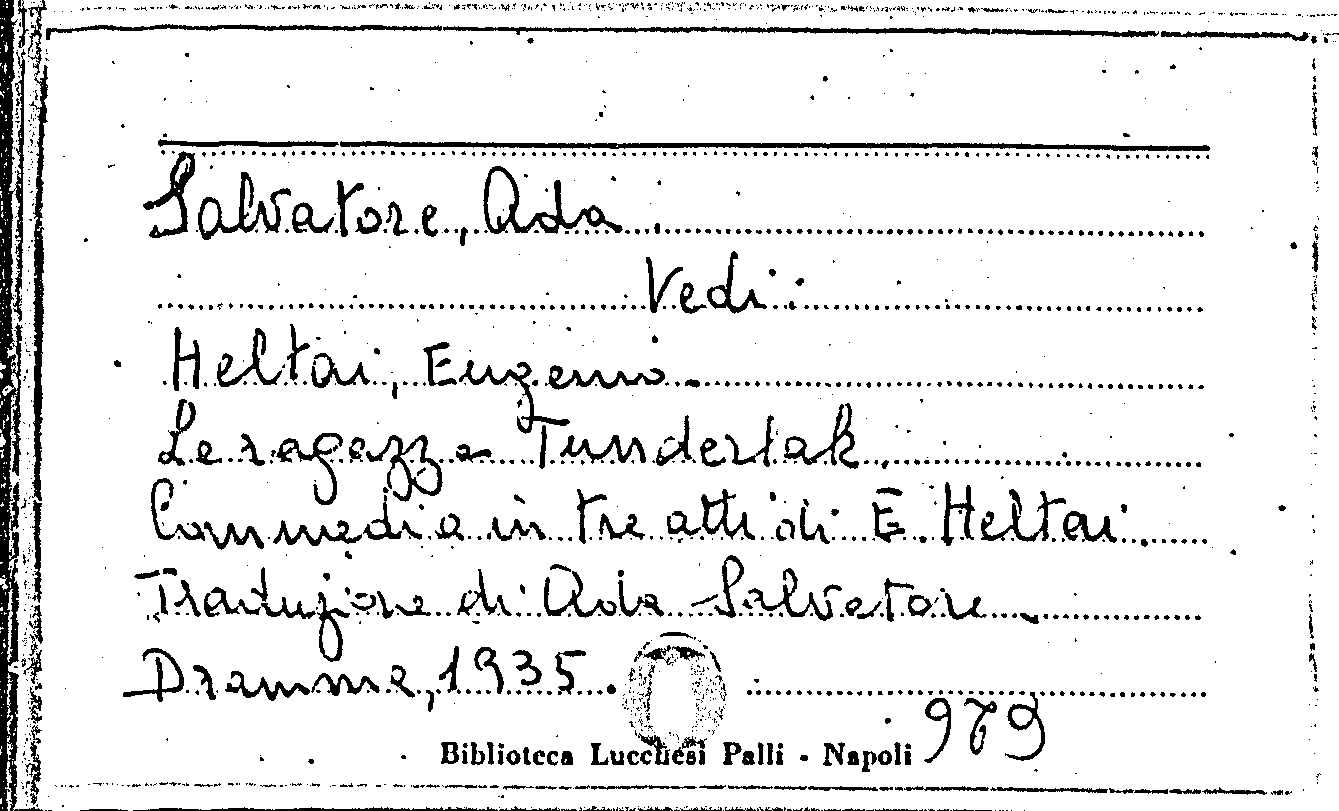 Salvatore, Ada.
Vedi:
Heltai, Eugenio.
Le ragazze Tunderlak.
Commedia in tre atti di E. Heltai.
Traduzione di Ada Salvatore.
Dramma, 1935.
979
Biblioteca Lucchesi Palli - Napoli